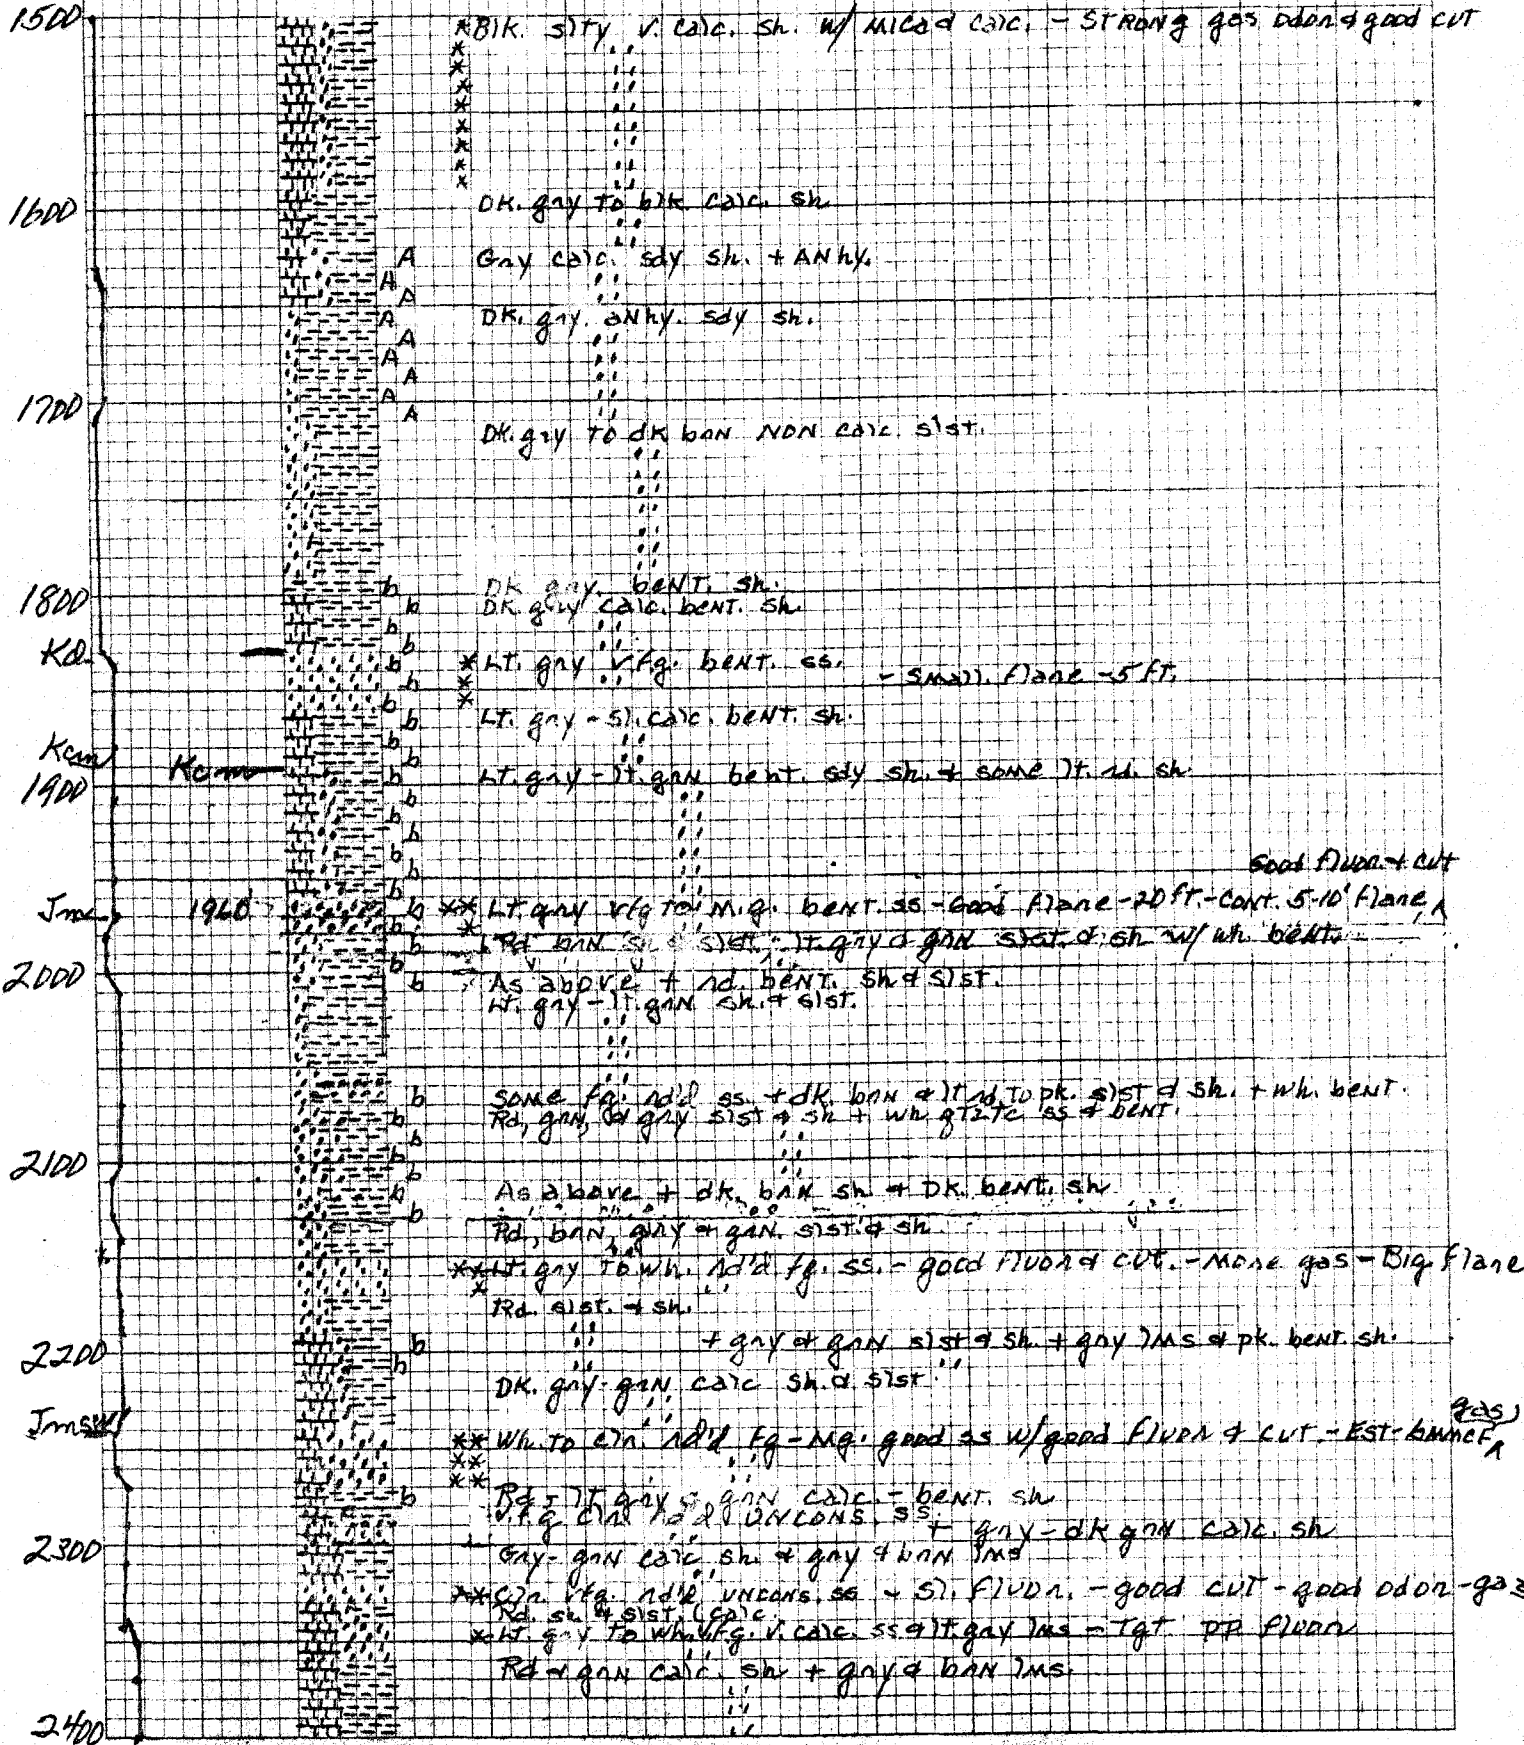 1500
*Blk. slty v. calc. sh. w/ mica & calc. - STRONG gas odor & good cut
1600
DK. gry to blk. calc. sh.
A Gry calc. sdy sh. + ANhy.
A
A
A DK. gry. aNhy. sdy sh.
A
A
A
A
1700
A
DK. gry to dk brN NON calc. slst.
b DK gry. beNT. sh.
1800
b DK. gry calc. bent. sh.
b
b
Kd
b * LT. gry v.fg. beNT. ss.
- Small flare -5 ft.
b
b
b Lt. gry - sl. calc. beNT. sh.
b
Kcm
b
Kcm
b Lt. gry - lt. grN bent. sdy sh. & some lt. rd. sh.
1900
b
b
b
b
b
Good fluor & cut
b
Jmc 1960 b ** LT. gry vfg to m.g. beNT. ss - Good flare - 20 ft. - CoNT. 5-10' flare
b
b Rd brN sh & slst, lt. gry & grN slst. & sh w/ wh beNt.
b
2000
b As above + rd. beNT. sh & slst.
Lt. gry - lt. grN sh. & slst.
b Some fg. rd'd ss. + dk. brN & lt rd. to pk. slst & sh. + wh. beNT.
b Rd, grN, & gry slst & sh + wh qtztc ss & beNT.
b
2100
b
b
b As above + dk. brN sh & DK. beNT. sh
b
Rd, brN, gry & grN. slst. & sh
** Lt. gry to wh. rd'd fg. ss. - good fluor & cut. - More gas - Big flare
Rd. slst. & sh.
b + gry & grN slst & sh + gry lms & pk. beNT. sh.
2200
b
DK. gry-grN calc sh. & slst.
Jmsw
gas
** Wh. to clr. rd'd Fg - Mg. good ss w/ good fluor & cut. - EST- 6mmcF
b Rd - lt gry & grN calc. - beNT. sh
v.f.g clr rd'd UNCONS. SS.
+ gry - dk grN calc. sh
2300
Gry - grN calc sh. & gry & brN lms
** Clr. vfg rd'd, UNCONS. ss - Sl. fluor. - good cut - good odor - gas
Rd. sh & slst. (calc.
* Lt. gry to wh. v.f.g. v. calc. ss & lt gry lms - Tgt PP. fluor
Rd & grN calc. sh + gry & brN lms.
2400